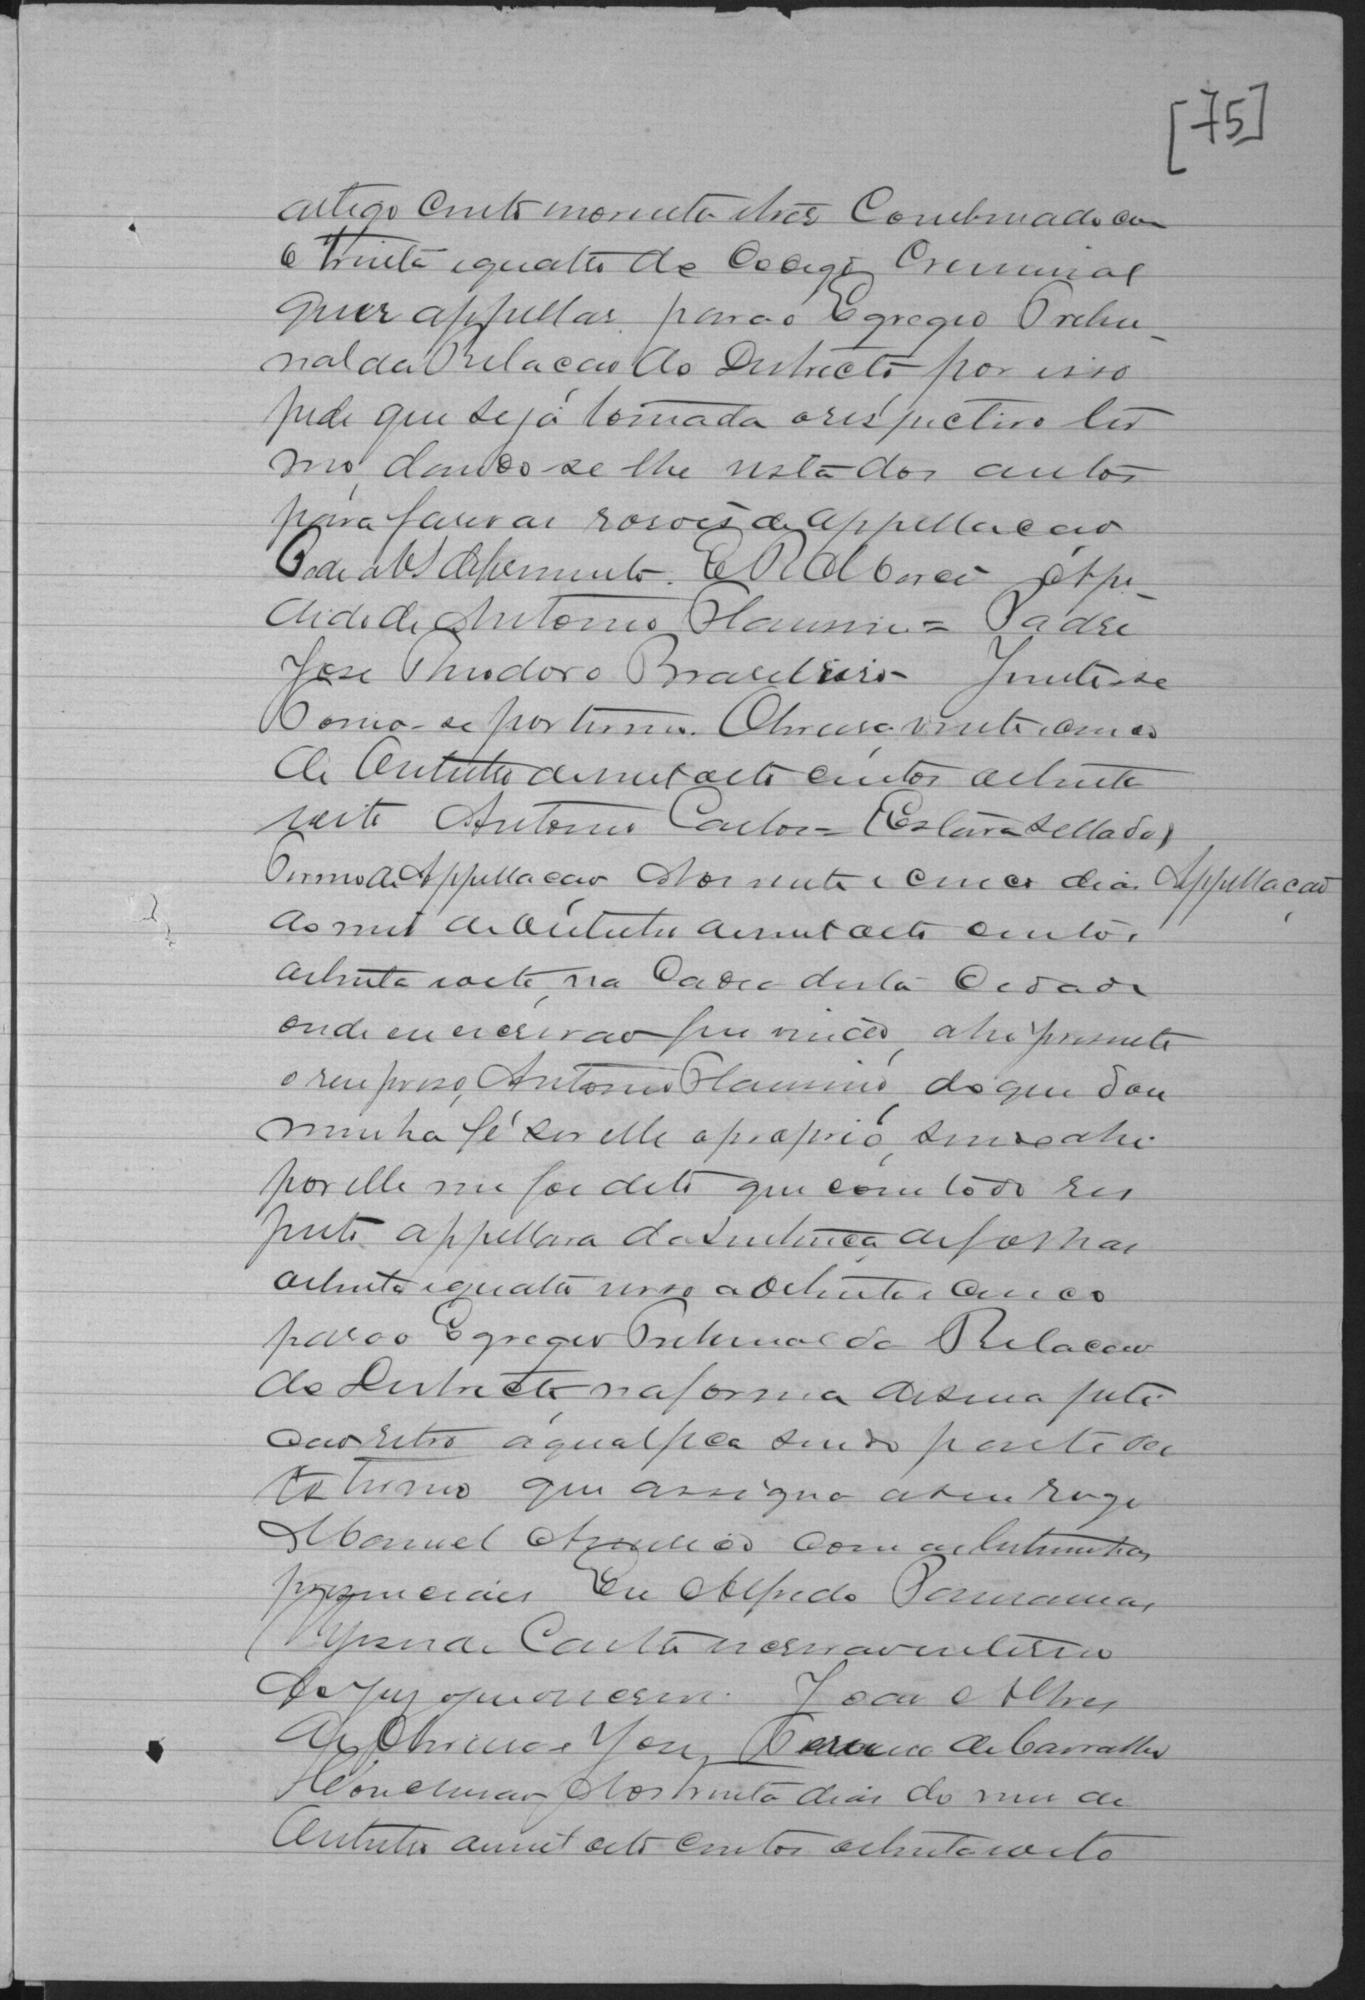 [75]
artigo cento noventa e tres Combinado com
o trinta e quatro do Codigo Creminal
quer appellar para o Egregio Tribu-
nal da Relacao do Destricto por isso
pede que seja tomada o respectivo ter
mo, dando-se lhe vista dos autos
para faser as rasoes de appellacao
Pede a V S deferimento. E R M Carcé a pe-
dido de Antonio Flaminio = Padre
Jose Theodoro Brasileiro - Junte-se
Tome-se por termo. Oliveira, vinte e cinco
de Outubro de mil oito centos oitenta
e oito Antonio Carlos = (Estava sellado)
Termo de Appellacao Aos vinte e cinco dias Appellação
do mez de Outubro de mil oito centos
oitenta e oito, na Cadea desta Cidade
onde eu escrivao fui vindo, ahi presente
o reu preso, Antonio Flaminio, do que dou
minha fé ser elle o proprio, sendo ahi
por elle me foi dito que com todo res
peito appellava da sentenca de folhas
oitenta e quatro verso a oitenta e cinco
para o Egregio Tribunal da Relacao
do Destricto, na forma de sua peti
cao retro a qual fica sendo parte des
te termo que assigna a seu rogo
Manuel Americo com as testemunhas
presenciaes Eu Alfredo
de Castro escrivao interino
do Jury que o escrevi. Joao Alves
de Oliveira - Jose de Carvalho
Concluzao Aos trinta dias do mez de
Outubro de mil oito centos oitenta e oito